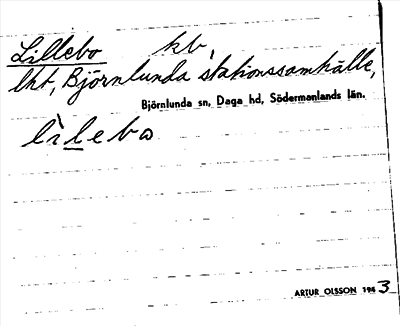 Lillebo kb,
lht, Björnlunda stationssamhälle,
Björnlunda sn, Daga hd, Södermanlands län.
lìlebo
ARTUR OLSSON 1943